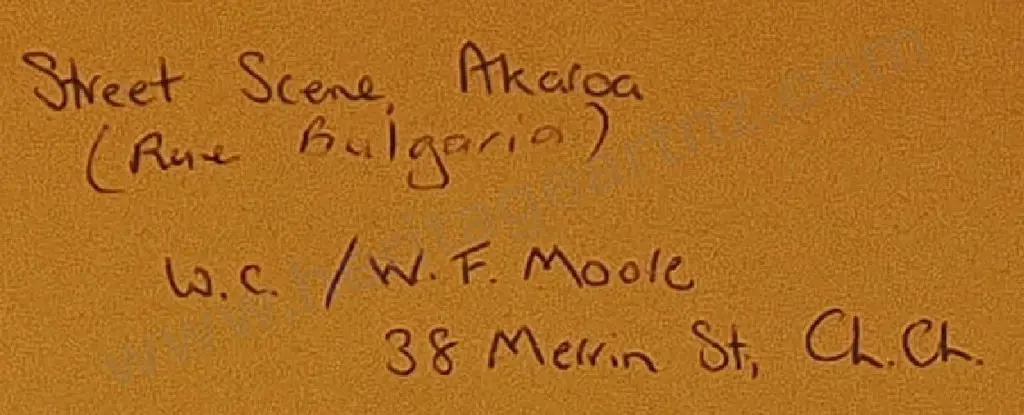 Street Scene, Akaroa
(Rue Bulgaria)
W.C. / W. F. Moole
38 Merrin St, Ch.Ch.